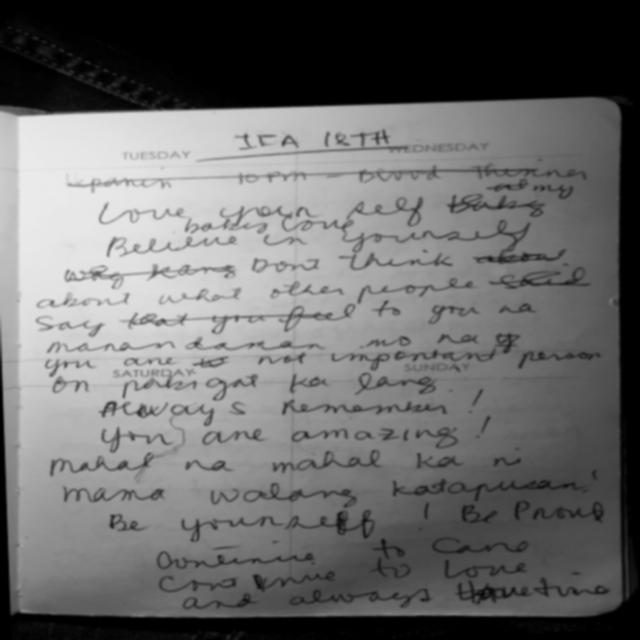 IEA 12TH
TUESDAY WEDNESDAY
10mm - blood thinner
at my
Love your self
babes love
Believe in yourself
Dont think
about what other people said
say that you feel to you na
manamdaman mo na
you are not important person
SATURDAY SUNDAY
pabigat ka lang
Always Remember!
You are amazing!
mahal na mahal ka ni
mama walang katapusan!
Be yourself! Be Proud
Continue to Care
Continue to Love
and always